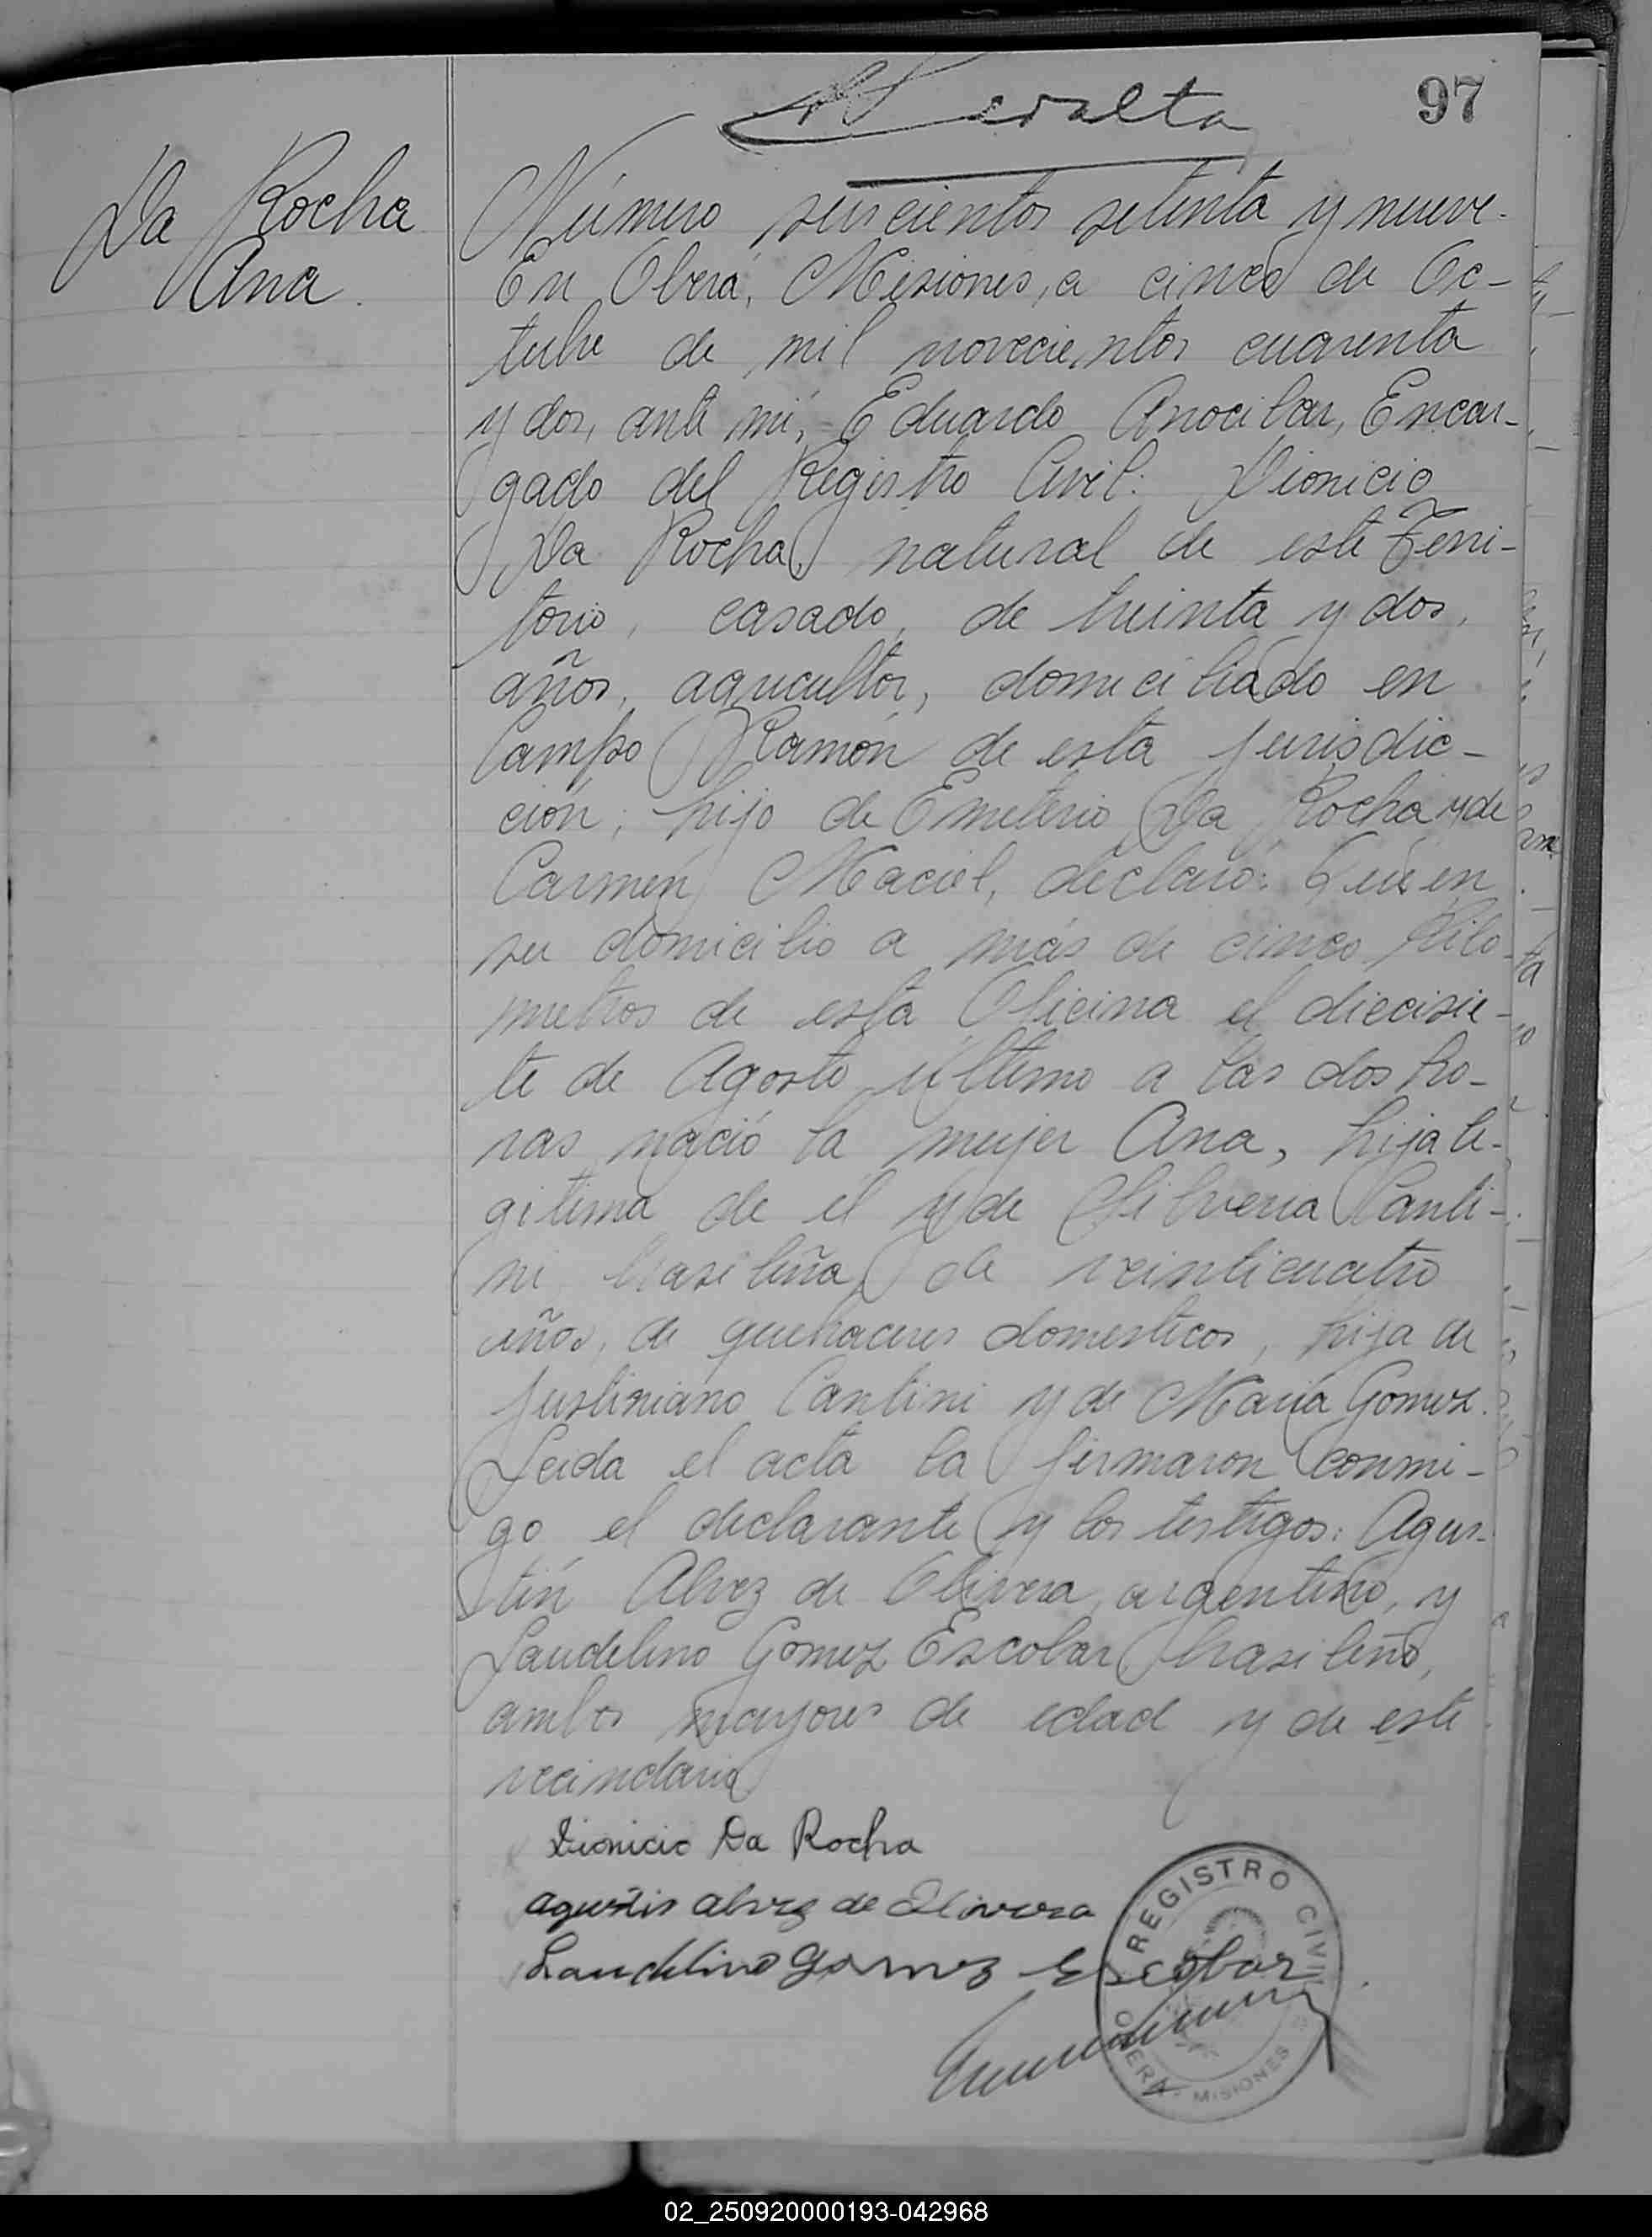 97
Peralta
Da Rocha
Ana
Número seiscientos setenta y nueve.
En Oberá, Misiones, a cinco de Oc-
tubre de mil novecientos cuarenta
y dos, ante mí, Eduardo Anocibar, Encar-
gado del Registro Civil: Dionicio
Da Rocha, natural de este Terri-
torio, casado, de treinta y dos
años, agricultor, domiciliado en
Campo Ramón de esta jurisdic-
ción, hijo de Emeterio Da Rocha y de
Carmen Maciel, declaró: Que en
su domicilio a más de cinco kiló-
metros de esta Oficina el diecisie-
te de Agosto último a las dos ho-
ras nació la mujer Ana, hija le-
gitima de él y de Silveria Cantí-
ni brasileña, de veinticuatro
años, de quehaceres domesticos, hija de
Justiniano Cantini y de María Gomez.
Leida el acta la firmaron conmi-
go el declarante y los testigos: Agus-
tín Alvez de Olivera, argentino, y
Laudelino Gomez Escobar, brasileño,
ambos mayores de edad y de este
vecindario
Dionicio Da Rocha
Agustin Alvez de Olivera
Laudelino Gomez Escobar
REGISTRO CIVIL
OBERA - MISIONES
02_250920000193-042968